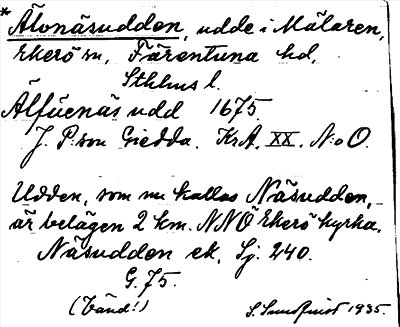 * Älvnäsudden, udde i Mälaren,
Ekerö sn, Färentuna hd,
Sthlms l.
Älfüenäs udd 1675.
J. P:son Giedda. KrA. XX. N:o O.
Udden, som nu kallas Näsudden,
är belägen 2 km. NNÖ Ekerö kyrka.
Näsudden ek. Sj. 240.
G. 75.
(Vänd!) S. Sundquist 1935.